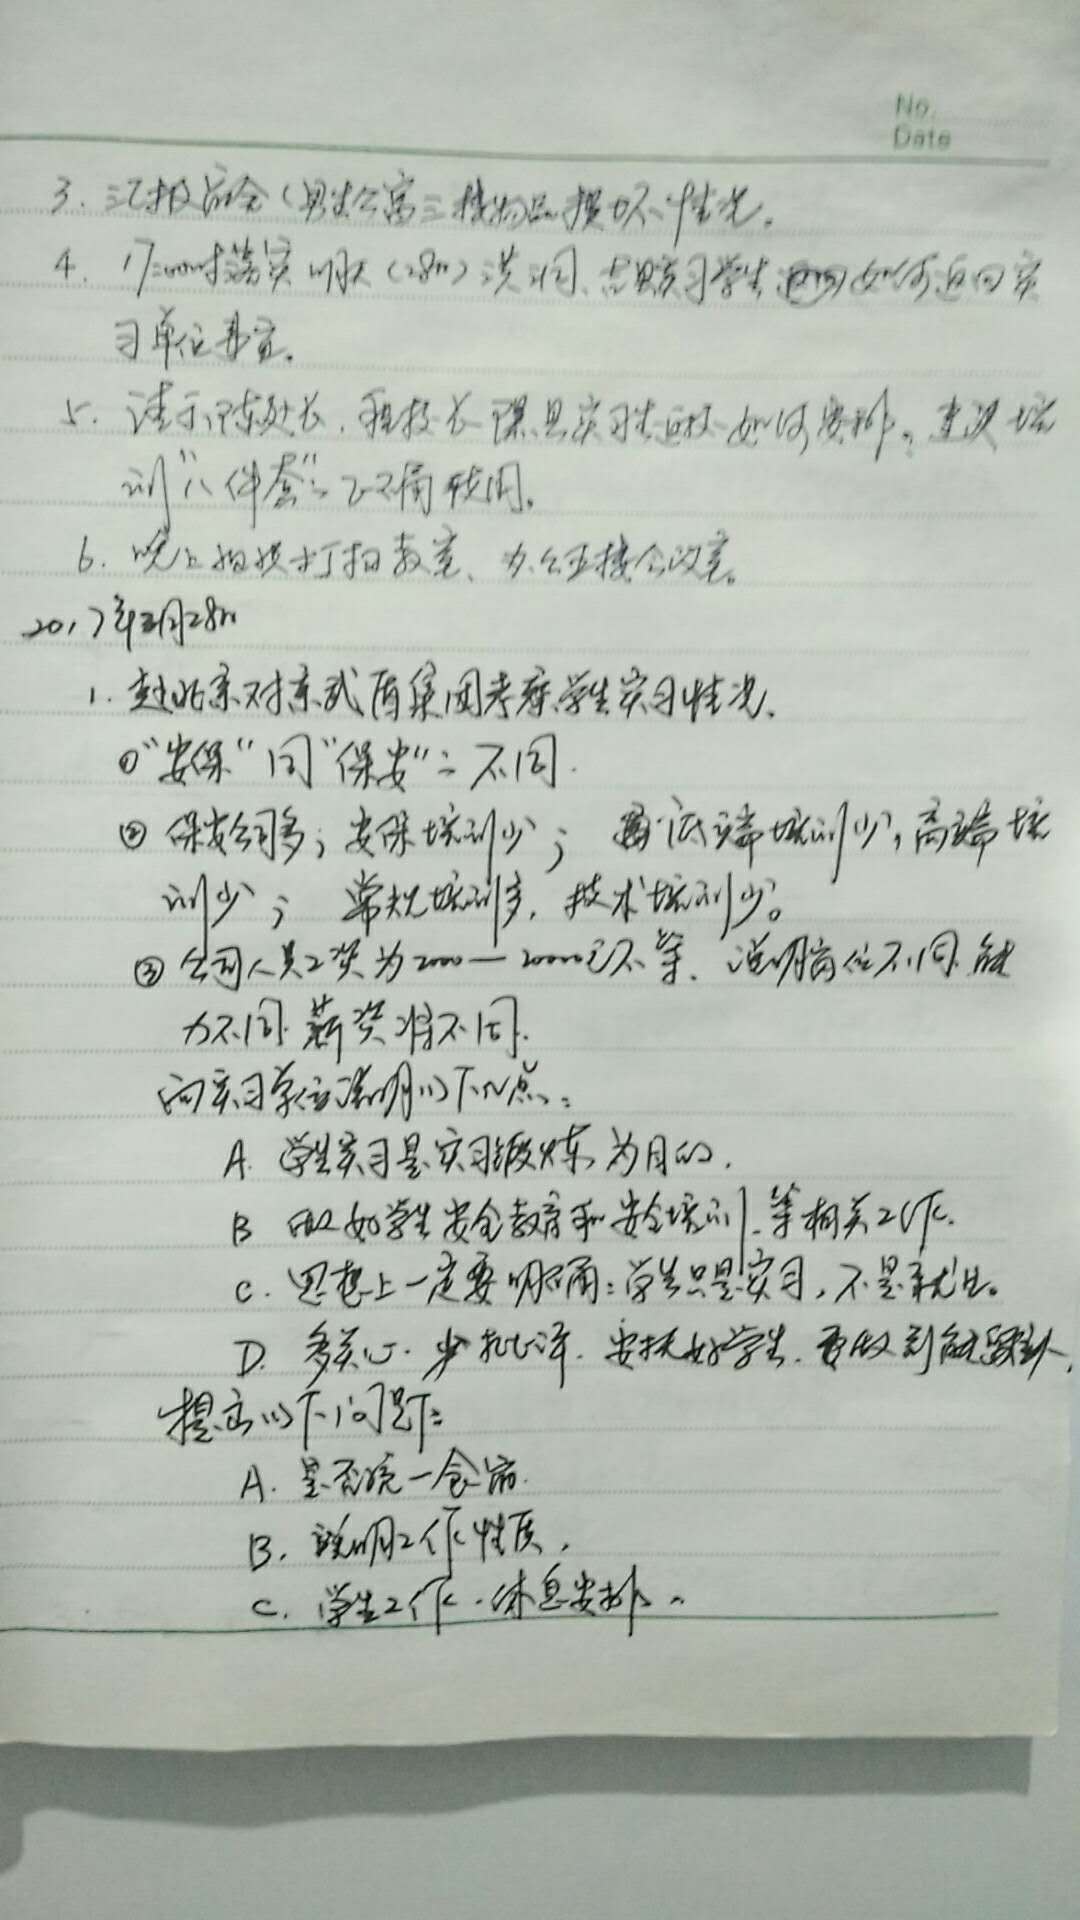 No.
Date
3. 汇报宿舍(男生公寓三楼物品损坏情况。
4. 17:00时落实明天(28日)洪洞、古县实习学生如何返回实
习单位事宜。
5. 请示陈处长、程校长隰县实习生返校如何安排。
训"八件套"
6. 晚上组织打扫教室、办公室
2017年3月28日
1. 赴北京对京武盾集团考察学生实习情况。
①"安保"同"保安"二不同.
② 保安公司多;安保培训少; 低端培训少,高端培
训少; 常规培训多,技术培训少。
③ 公司人员工资为2000—20000元不等、说明岗位不同.能
力不同.薪资将不同.
向实习单位说明以下几点:
A. 学生实习是实习锻炼为目的.
B 做好学生安全教育和安全培训.等相关工作.
C. 思想上一定要明确:学生只是实习,不是就业。
D. 多关心.少批评.安抚好学生.要做到
提出以下问题:
A. 是否统一食宿.
B. 说明工作性质.
C. 学生工作.休息安排.